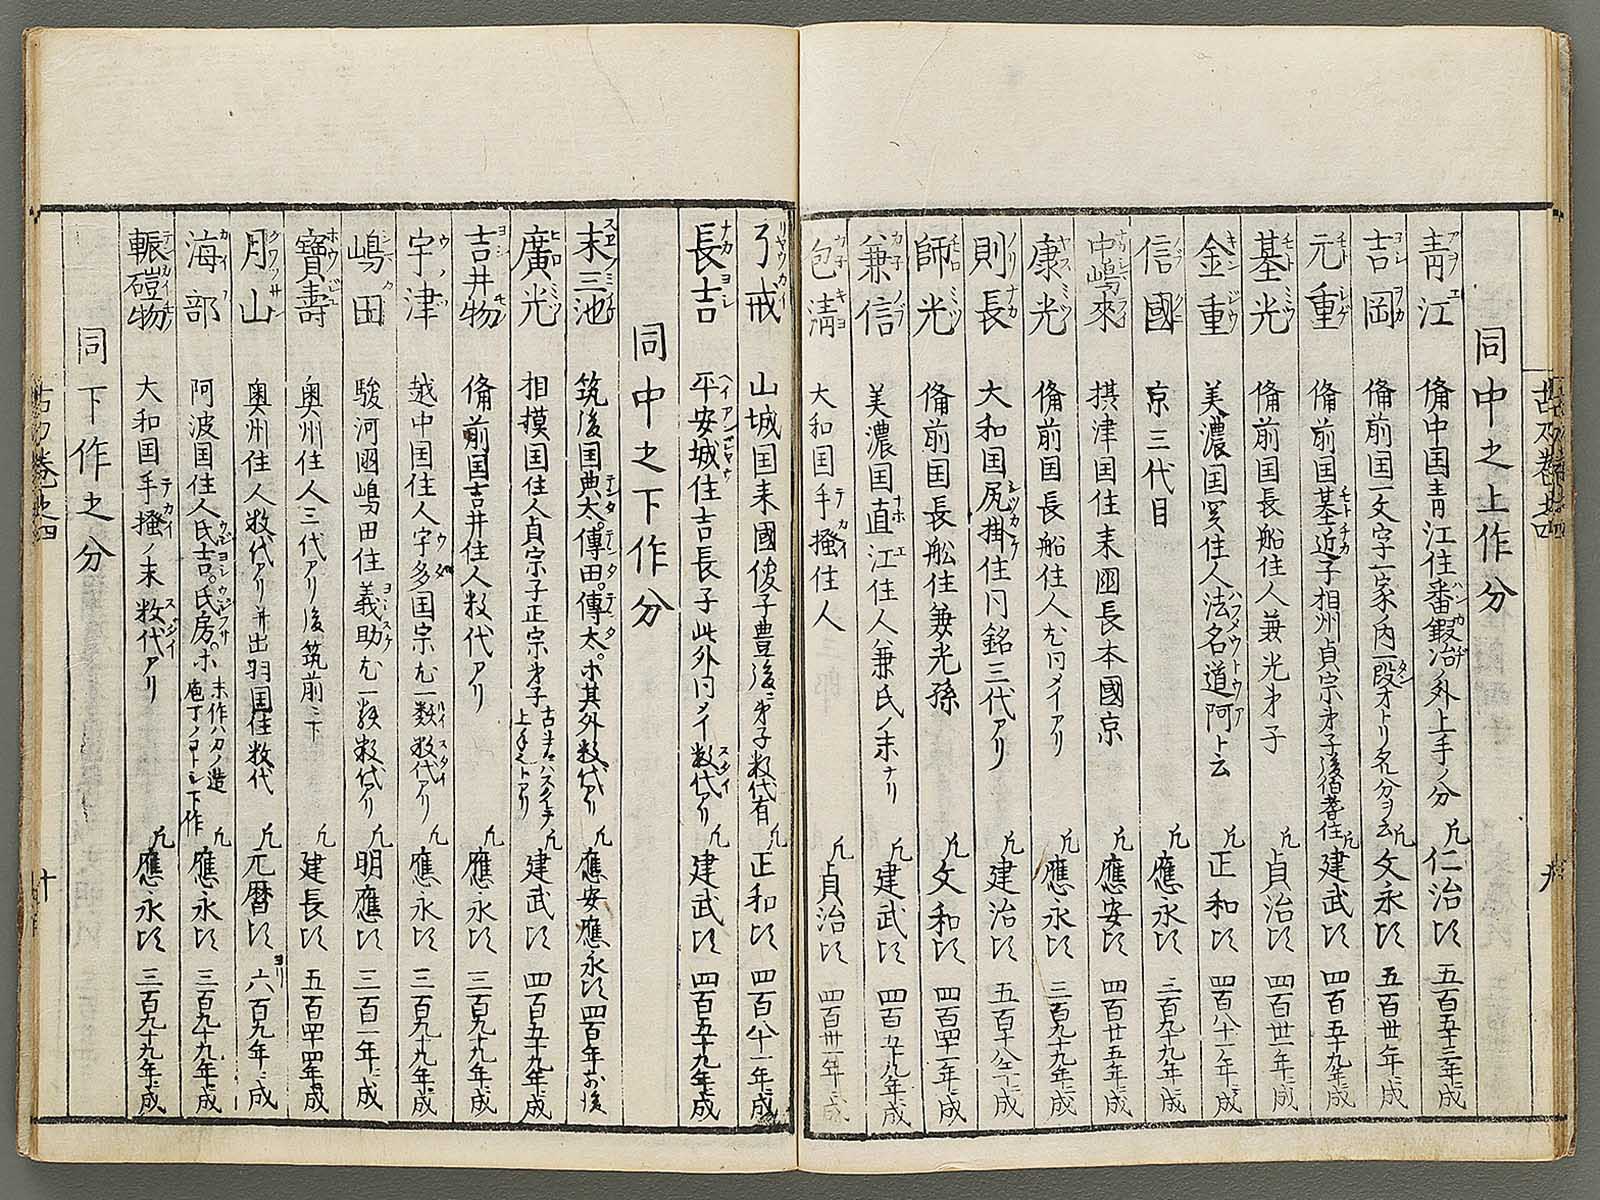 同中之上作分
青江 備中国青江住番鍛冶ノ外上手ノ分 凡仁治比 五百五十三年ニ成
吉岡 備前国一文字一家ノ内一段オトリ名分ヲ云 凡文永比 五百卅年ニ成
元重 備前国基近子相州貞宗弟子後宿老住 凡建武比 四百五十九年ニ成
基光 備前国長船住人兼光弟子 凡貞治比 四百卅一年ニ成
金重 美濃国関住人法名道阿ト云 凡正和比 四百八十一年ニ成
信國 京三代目 凡應永比 三百九十九年ニ成
中嶋來 摂津国住来國長本國京 凡應安比 四百廿五年ニ成
康光 備前国長船住人尤同メイアリ 凡應永比 三百九十九年ニ成
則長 大和国尻掛住同銘三代アリ 凡建治比 五百十八年ニ成
師光 備前国長舩住兼光孫 凡文和比 四百四十一年ニ成
兼信 美濃国直江住人兼氏ノ末ナリ 凡建武比 四百五十九年ニ成
包清 大和国手掻住人 凡貞治比 四百卅一年ニ成
了戒 山城国来國俊子豊後ニ弟子数代有 凡正和比 四百八十一年ニ成
長吉 平安城住吉長子此外同メイ数代アリ 凡建武比 四百五十九年ニ成
同中之下作分
末三池 筑後国典太。傳田。傳太。ホ其外数代アリ 凡應安應永比 四百年お後
廣光 相摸国住人貞宗子正宗弟子 上手ト アリ 凡建武比 四百五十九年ニ成
吉井物 備前国吉井住人数代アリ 凡應永比 三百九十九年ニ成
宇津 越中国住人宇多国宗尤一類数代アリ 凡應永比 三百九十九年ニ成
嶋田 駿河國嶋田住義助尤一類数代アリ 凡明應比 三百一年ニ成
寶壽 奥州住人三代アリ後筑前ニ下 凡建長比 五百四十四年ニ成
月山 奥州住人数代アリ并出羽国住数代 凡元暦比ヨリ 六百九年ニ成
海部 阿波国住人氏吉。氏房。ホ 末作ハ刀ノ造 庖丁ノコトシ下作 凡應永比 三百九十九年ニ成
輾磑物 大和国手掻ノ末数代アリ 凡應永比 三百九十九年ニ成
同下作之分
古刀巻之四
十